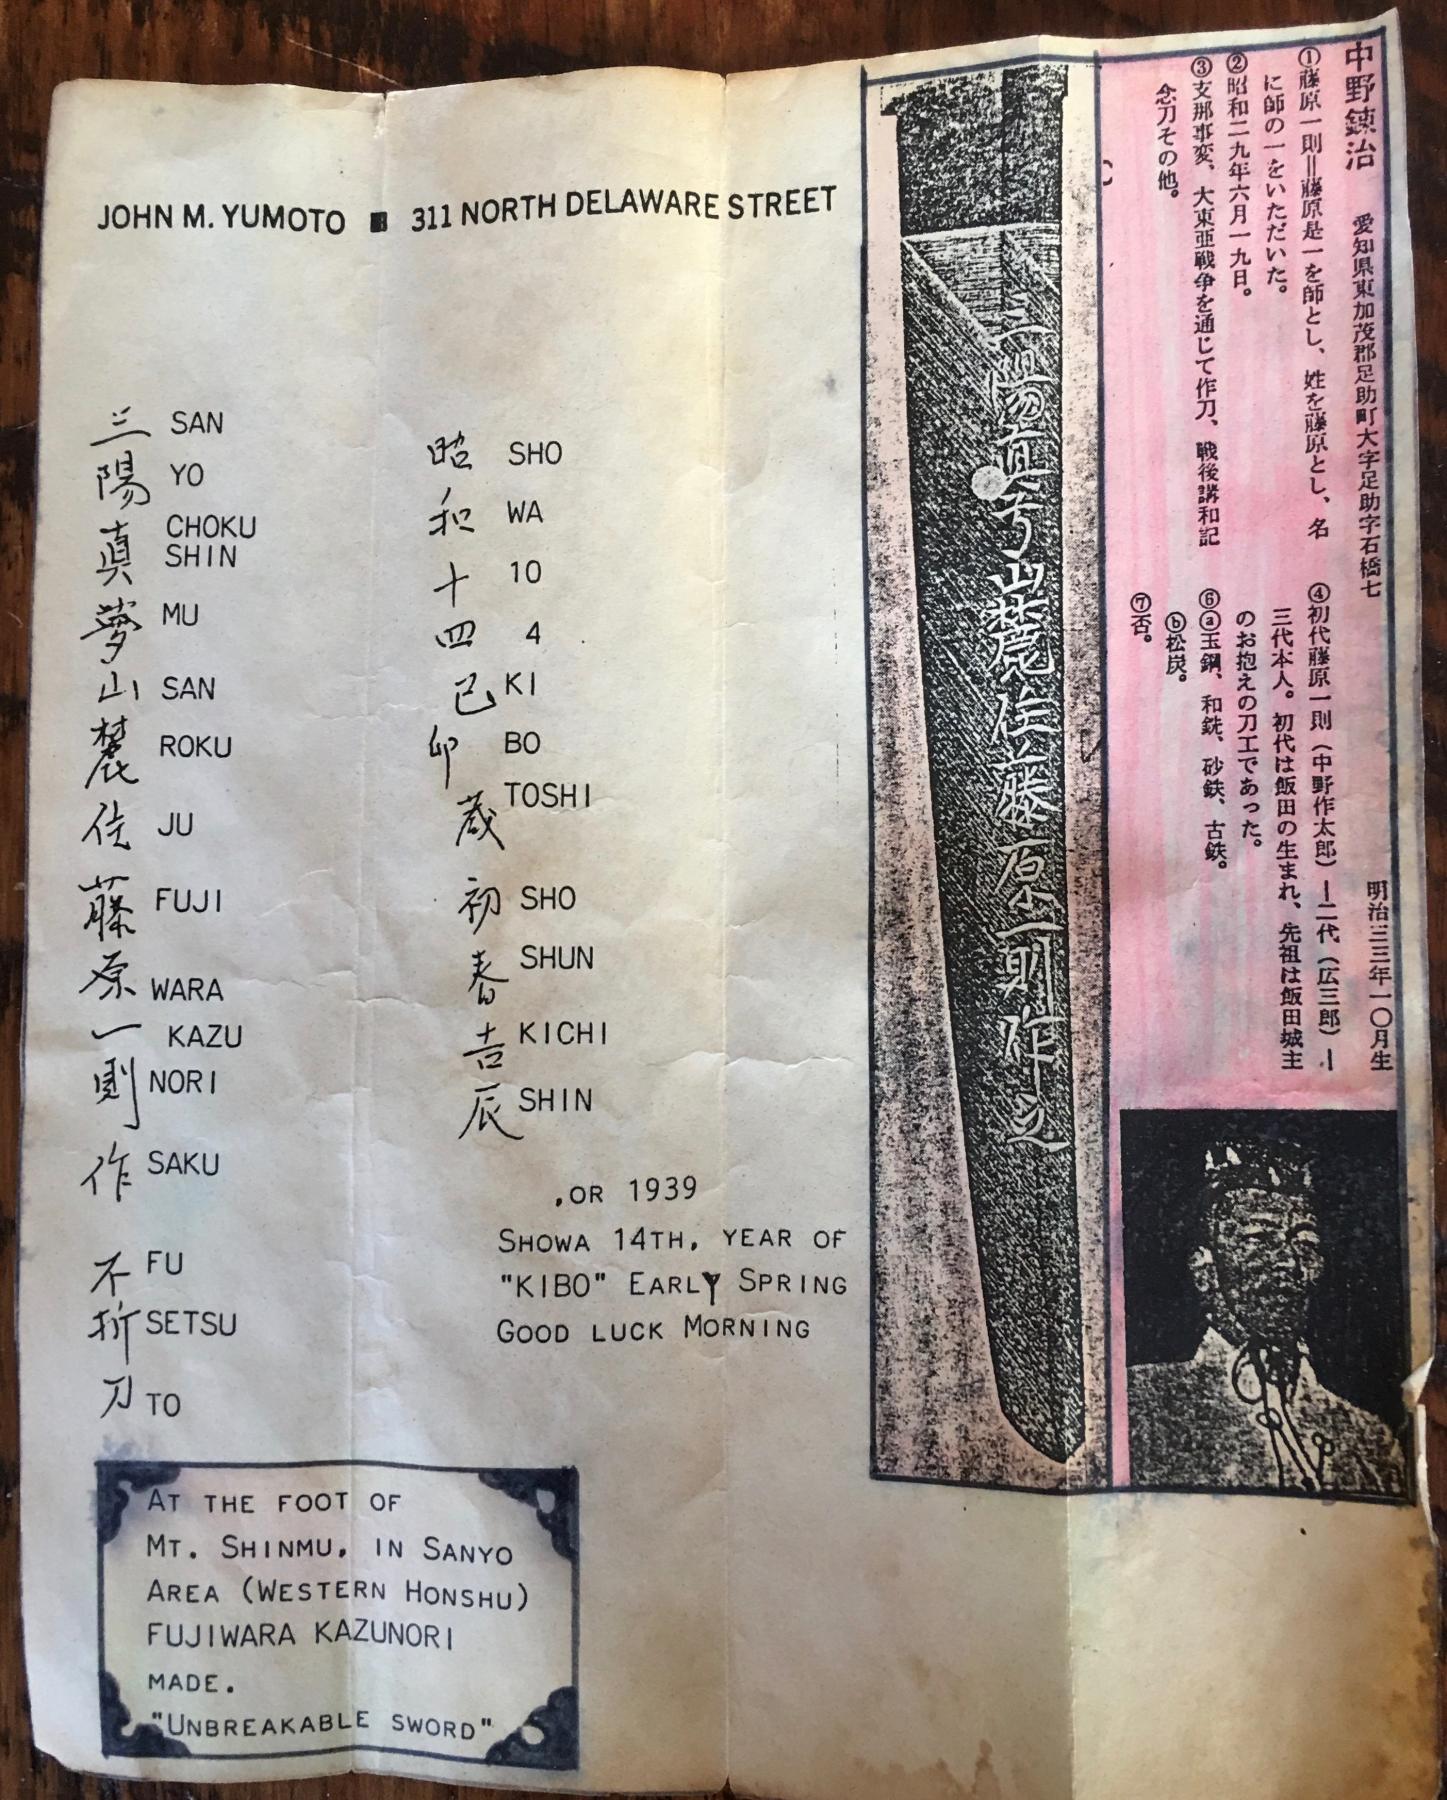 JOHN M. YUMOTO ■ 311 NORTH DELAWARE STREET
三 SAN
陽 YO
真 CHOKU
SHIN
夢 MU
山 SAN
麓 ROKU
住 JU
藤 FUJI
原 WARA
一 KAZU
則 NORI
作 SAKU
不 FU
折 SETSU
刀 TO
AT THE FOOT OF
MT. SHINMU, IN SANYO
AREA (WESTERN HONSHU)
FUJIWARA KAZUNORI
MADE.
"UNBREAKABLE SWORD"
昭 SHO
和 WA
十 10
四 4
己 KI
卯 BO
歳 TOSHI
初 SHO
春 SHUN
吉 KICHI
辰 SHIN
.OR 1939
SHOWA 14TH, YEAR OF
"KIBO" EARLY SPRING
GOOD LUCK MORNING
中野錬治 愛知県東加茂郡足助町大字足助字石橋七
明治三三年一〇月生
①藤原一則=藤原是一を師とし、姓を藤原とし、名
に師の一をいただいた。
②昭和二九年六月一九日。
③支那事変、大東亜戦争を通じて作刀、戦後講和記
念刀その他。
④初代藤原一則（中野作太郎）—二代（広三郎）—
三代本人。初代は飯田の生まれ、先祖は飯田城主
のお抱えの刀工であった。
⑥ⓐ玉鋼、和銑、砂鉄、古鉄。
ⓑ松炭。
⑦否。
三陽真 山麓住藤原一則作之